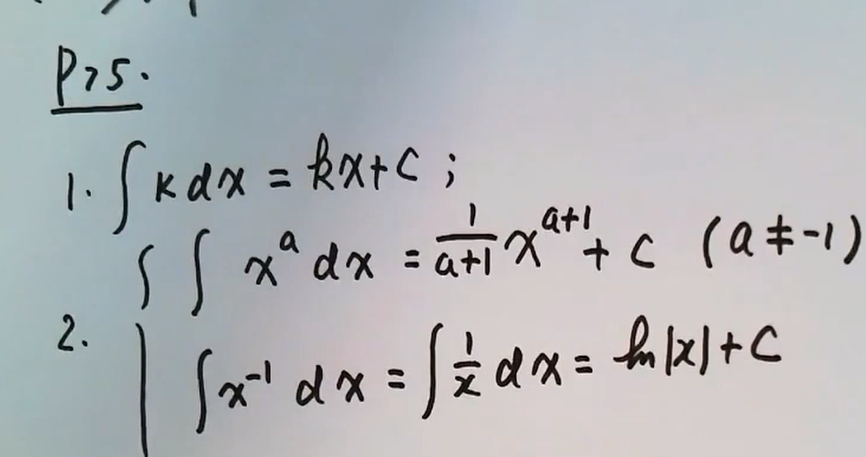 P75.
1. ∫ k dx = kx + C ;
2. { ∫ x^a dx = 1/(a+1) x^(a+1) + C (a ≠ -1)
∫ x^(-1) dx = ∫ 1/x dx = ln|x| + C